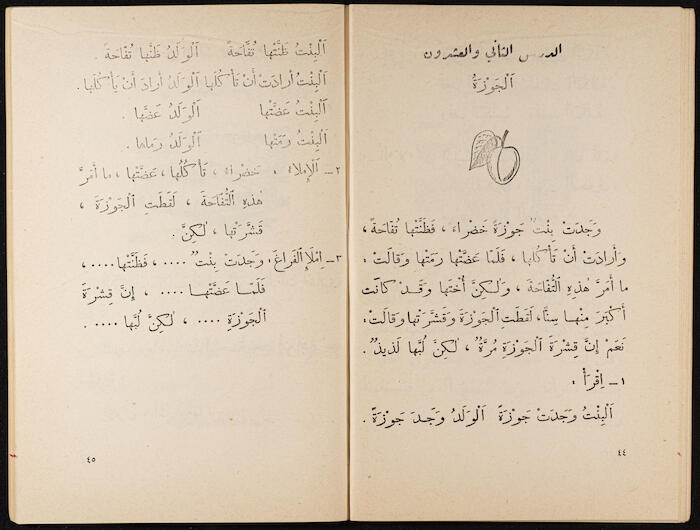 الدرس الثاني والعشرون
اَلْجَوْزَةُ
وَجَدَتْ بِنْتٌ جَوْزَةً خَضْرَاءَ ، فَظَنَّتْها تُفّاحَةً ،
وَأَرادَتْ أَنْ تَأْكُلَها ، فَلَمّا عَضَّتْها رَمَتْها وَقالَتْ :
ما أَمَرَّ هٰذِهِ التُّفّاحَةَ ، وَلٰكِنَّ أُخْتَها وَقَدْ كانَتْ
أَكْبَرَ مِنْها سِنًّا ، لَقَطَتِ الْجَوْزَةَ وَقَشَّرَتْها وَقالَتْ :
نَعَمْ إِنَّ قِشْرَةَ الْجَوْزَةِ مُرَّةٌ ، لٰكِنَّ لُبَّها لَذيذٌ .
١ – اِقْرَأْ :
اَلْبِنْتُ وَجَدَتْ جَوْزَةً اَلْوَلَدُ وَجَدَ جَوْزَةً .
٤٤
اَلْبِنْتُ ظَنَّتْها تُفّاحَةً اَلْوَلَدُ ظَنَّها تُفّاحَةً .
اَلْبِنْتُ أَرادَتْ أَنْ تَأْكُلَها اَلْوَلَدُ أَرادَ أَنْ يَأْكُلَها .
اَلْبِنْتُ عَضَّتْها اَلْوَلَدُ عَضَّها .
اَلْبِنْتُ رَمَتْها اَلْوَلَدُ رَماها .
٢ – اَلْإِمْلاءُ : خَضْراءُ ، تَأْكُلُها ، عَضَّتْها ، ما أَمَرَّ
هٰذِهِ التُّفّاحَةَ ، لَقَطَتِ الْجَوْزَةَ ،
قَشَّرَتْها ، لٰكِنَّ .
٣ – اِمْلَإِ الْفَراغَ : وَجَدَتْ بِنْتٌ .... ، فَظَنَّتْها .... ،
فَلَمّا عَضَّتْها .... ، إِنَّ قِشْرَةَ
الْجَوْزَةِ .... ، لٰكِنَّ لُبَّها .... .
٤٥